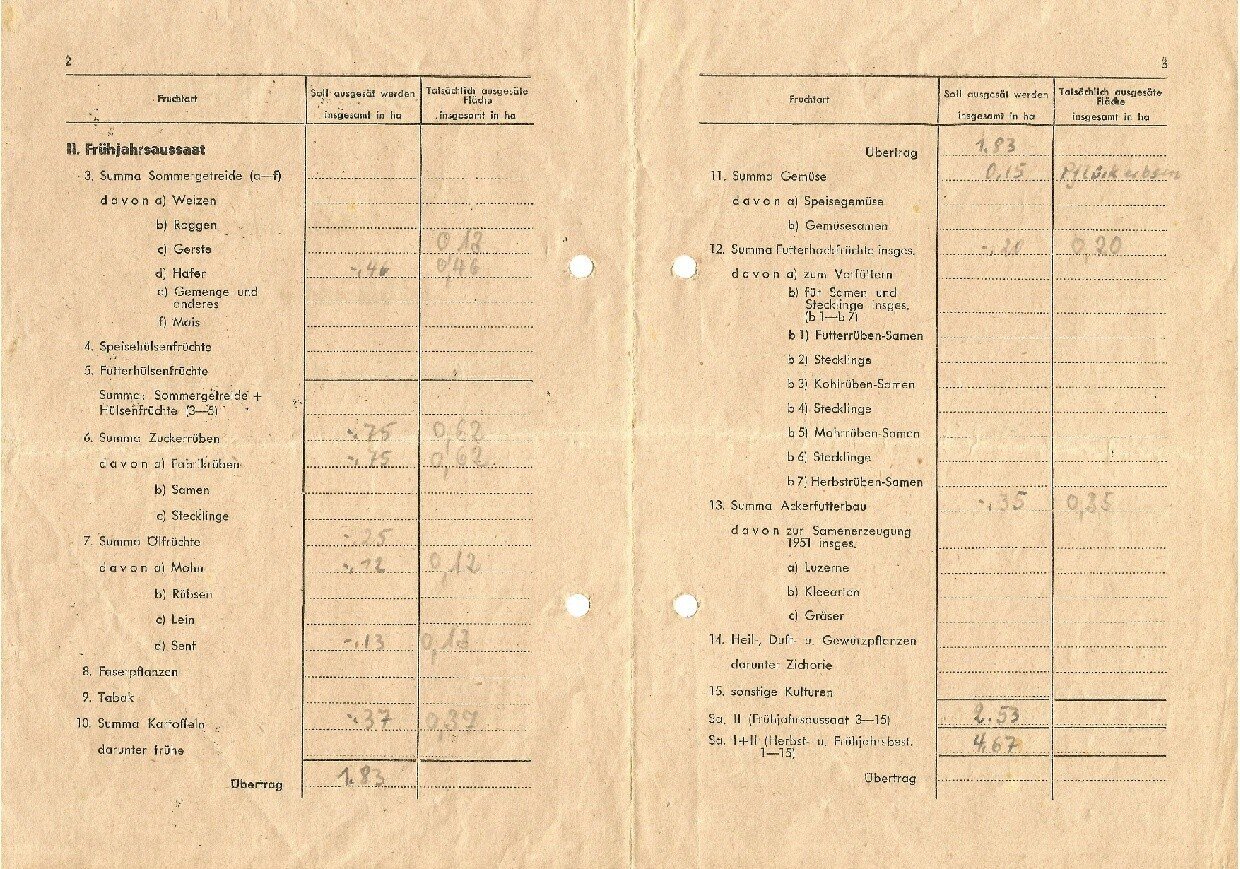 2
Fruchtart Soll ausgesät werden insgesamt in ha Tatsächlich ausgesäte Fläche insgesamt in ha
II. Frühjahrsaussaat
3. Summa Sommergetreide (a—f)
davon a) Weizen
b) Roggen
c) Gerste 0,12
d) Hafer -.46 0,46
e) Gemenge und
anderes
f) Mais
4. Speisehülsenfrüchte
5. Futterhülsenfrüchte
Summa: Sommergetreide +
Hülsenfrüchte (3—5)
6. Summa Zuckerrüben -.75 0,62
davon a) Fabrikrüben -.75 0,62
b) Samen
c) Stecklinge
7. Summa Ölfrüchte -.25
davon a) Mohn -.12 0,12
b) Rübsen
c) Lein
d) Senf -.13 0,13
8. Faserpflanzen
9. Tabak
10. Summa Kartoffeln -.37 0,37
darunter frühe
Übertrag 1.83
3
Fruchtart Soll ausgesät werden insgesamt in ha Tatsächlich ausgesäte Fläche insgesamt in ha
Übertrag 1.83
11. Summa Gemüse 0,15 Pflückerbsen
davon a) Speisegemüse
b) Gemüsesamen
12. Summa Futterhackfrüchte insges. -.20 0,20
davon a) zum Verfüttern
b) für Samen und
Stecklinge insges.
(b 1—b 7)
b 1) Futterrüben-Samen
b 2) Stecklinge
b 3) Kohlrüben-Samen
b 4) Stecklinge
b 5) Mohrrüben-Samen
b 6) Stecklinge
b 7) Herbstrüben-Samen
13. Summa Ackerfutterbau -.35 0,35
davon zur Samenerzeugung
1951 insges.
a) Luzerne
b) Kleearten
c) Gräser
14. Heil-, Duft- u. Gewürzpflanzen
darunter Zichorie
15. sonstige Kulturen
Sa. II (Frühjahrsaussaat 3—15) 2.53
Sa. I+II (Herbst- u. Frühjahrsbest.
1—15) 4,67
Übertrag